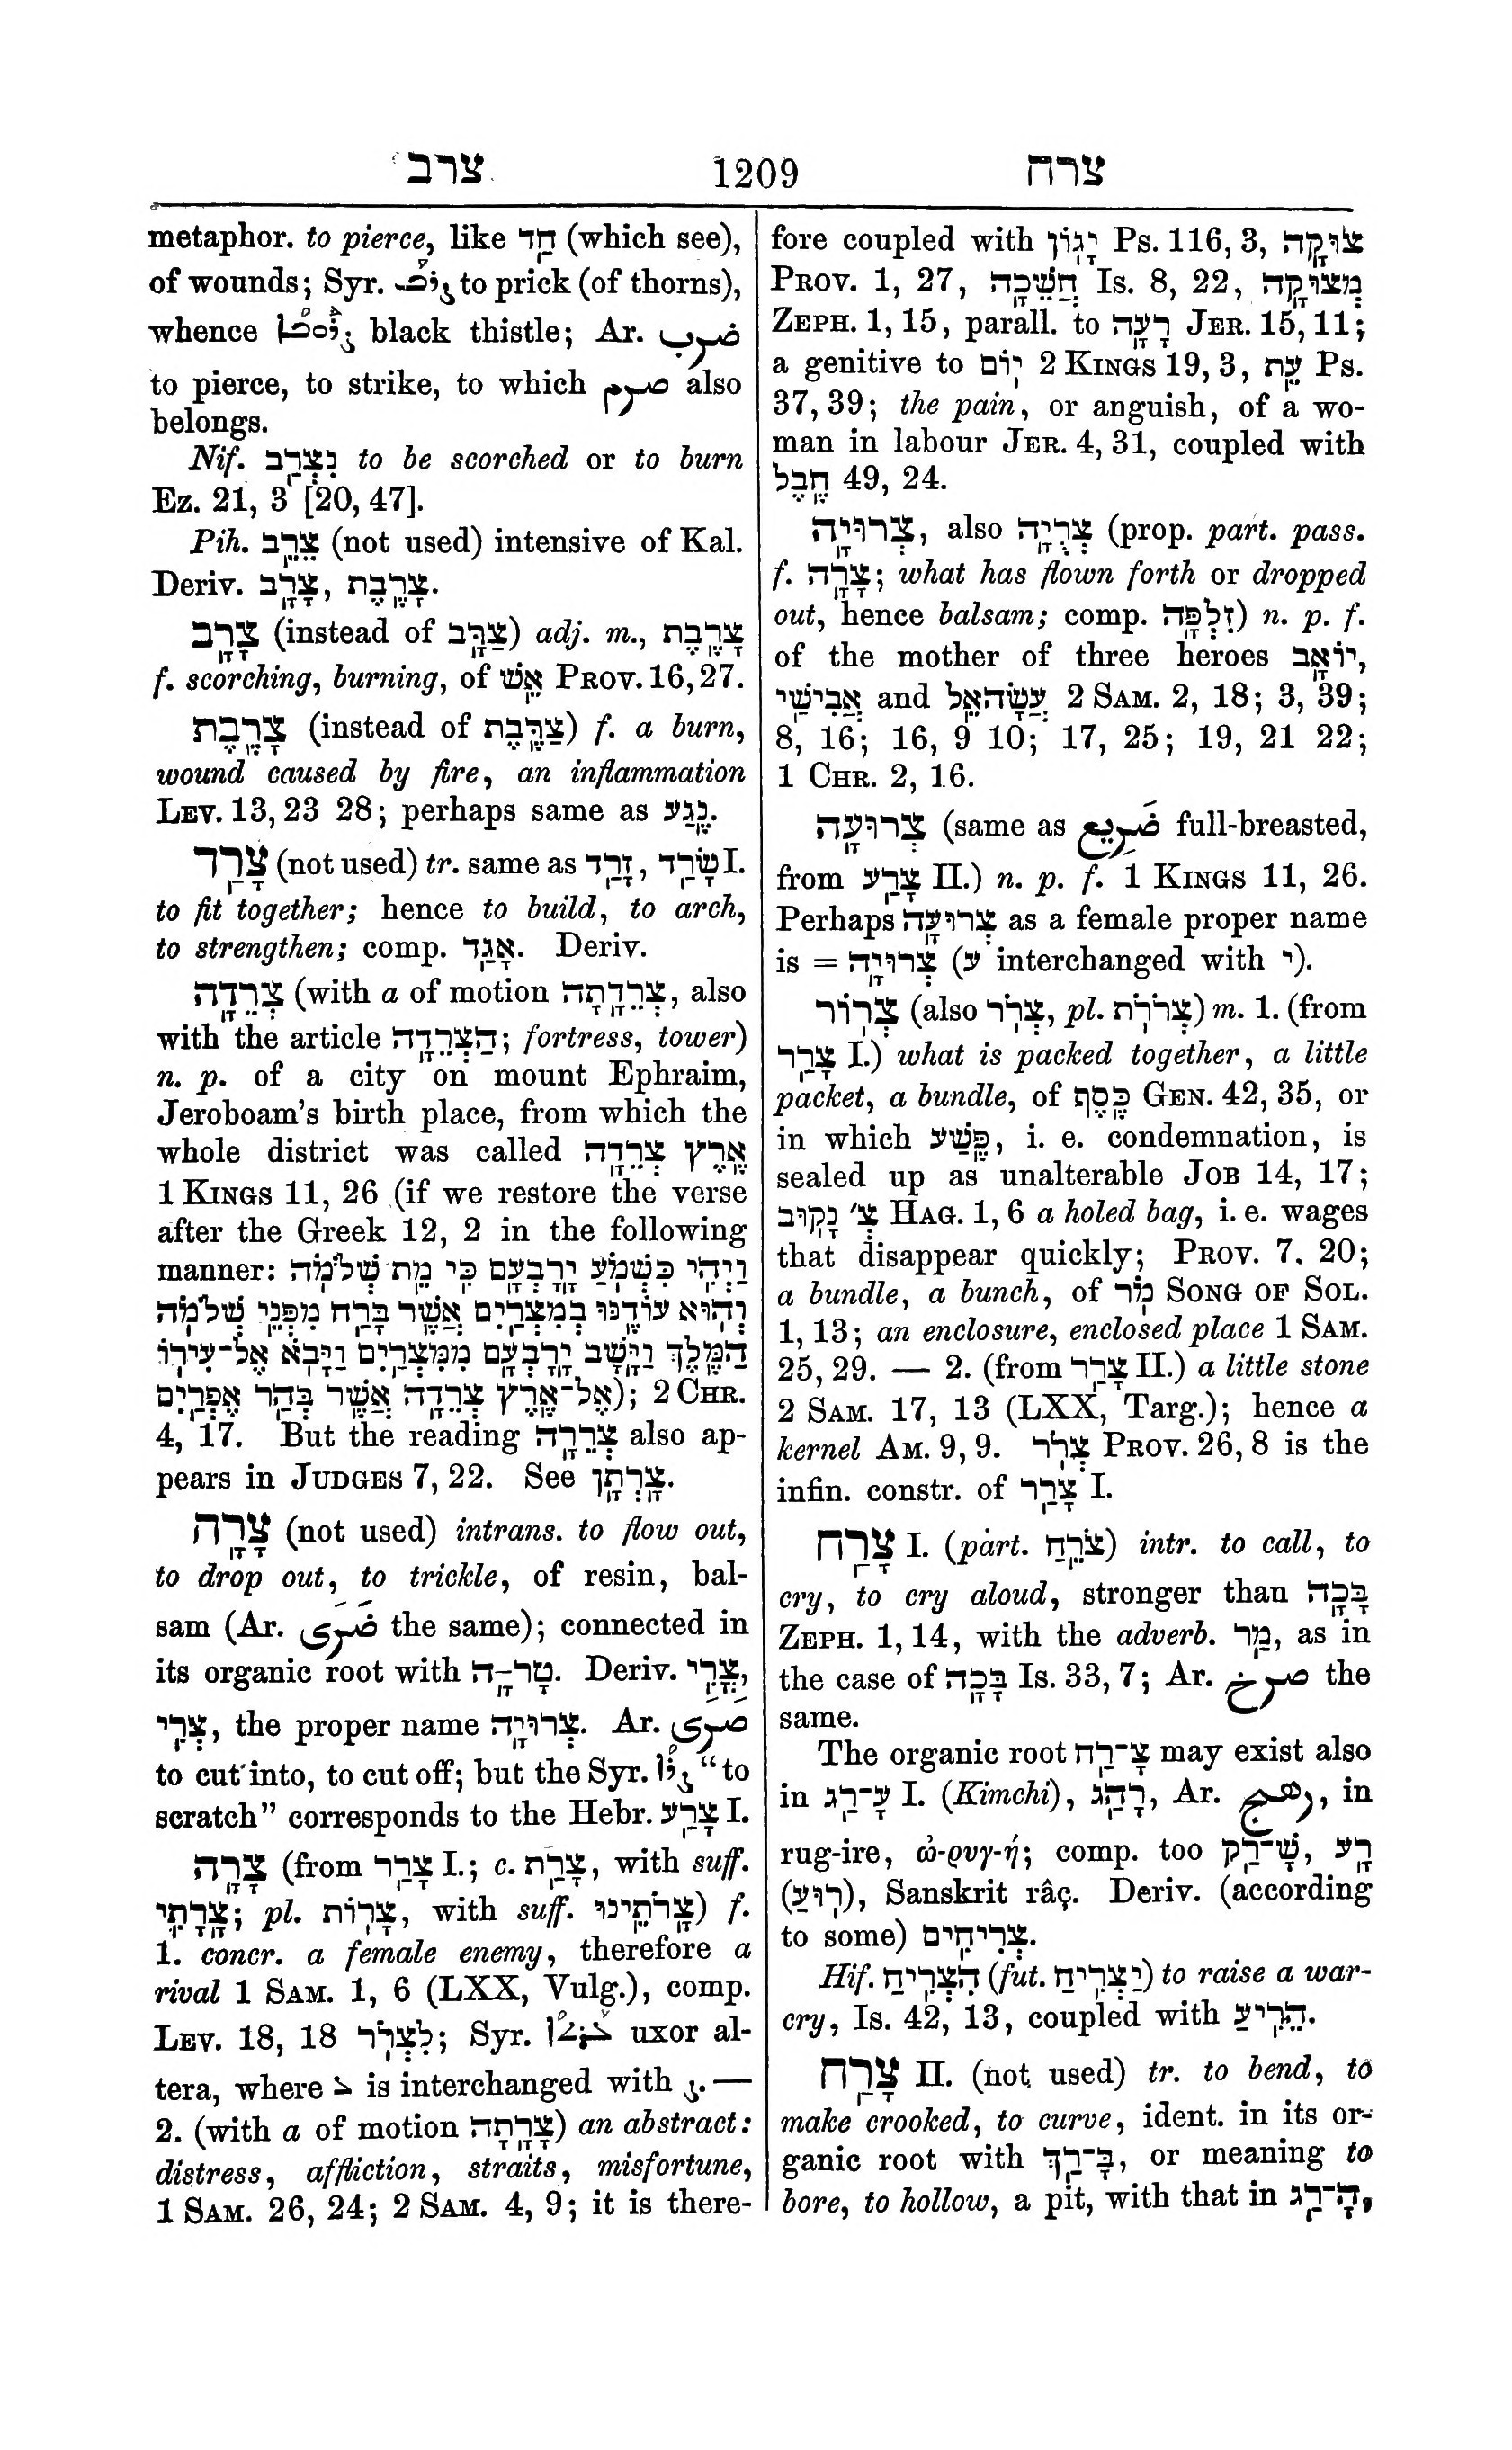 צרב 1209 צרח
metaphor. to pierce, like חַד (which see),
of wounds; Syr. ܙܪܒ to prick (of thorns),
whence black thistle; Ar. ضرب
to pierce, to strike, to which صرم also
belongs.
Nif. נִצְרַב to be scorched or to burn
Ez. 21, 3 [20, 47].
Pih. צֵרֵב (not used) intensive of Kal.
Deriv. צָרָב, צָרֶבֶת.
צָרָב (instead of צַרָּב) adj. m., צָרֶבֶת
f. scorching, burning, of אֵשׁ Prov. 16, 27.
צָרֶבֶת (instead of צַרֶּבֶת) f. a burn,
wound caused by fire, an inflammation
Lev. 13, 23 28; perhaps same as נֶגַע.
צָרַד (not used) tr. same as זָרַד, שָׂרַד I.
to fit together; hence to build, to arch,
to strengthen; comp. אָגַד. Deriv.
צְרֵדָה (with a of motion צְרֵדָתָה, also
with the article הַצְּרֵדָה; fortress, tower)
n. p. of a city on mount Ephraim,
Jeroboam's birth place, from which the
whole district was called אֶרֶץ צְרֵדָה
1 Kings 11, 26 (if we restore the verse
after the Greek 12, 2 in the following
manner: וַיְהִי כִּשְׁמֹעַ יָרָבְעָם כִּי מֵת שְׁלֹמֹה
וְהוּא עוֹדֶנּוּ בְמִצְרַיִם אֲשֶׁר בָּרַח מִפְּנֵי שְׁלֹמֹה
הַמֶּלֶךְ וַיֵּשֶׁב יָרָבְעָם מִמִּצְרַיִם וַיָּבֹא אֶל־עִירוֹ
אֶל־אֶרֶץ צְרֵדָה אֲשֶׁר בְּהַר אֶפְרַיִם); 2 Chr.
4, 17. But the reading צְרֵרָה also ap-
pears in Judges 7, 22. See צָרְתָן.
צָרָה (not used) intrans. to flow out,
to drop out, to trickle, of resin, bal-
sam (Ar. ضَرَى the same); connected in
its organic root with טָרָ־ה. Deriv. צֳרִי,
צְרִי, the proper name צְרוּיָה. Ar. صَرَى
to cut into, to cut off; but the Syr. "to
scratch" corresponds to the Hebr. צָרַע I.
צָרָה (from צָרַר I.; c. צָרַת, with suff.
צָרָתִי; pl. צָרוֹת, with suff. צָרֹתֵינוּ) f.
1. concr. a female enemy, therefore a
rival 1 Sam. 1, 6 (LXX, Vulg.), comp.
Lev. 18, 18 לִצְרֹר; Syr. uxor al-
tera, where is interchanged with .—
2. (with a of motion צָרָתָה) an abstract:
distress, affliction, straits, misfortune,
1 Sam. 26, 24; 2 Sam. 4, 9; it is there-
fore coupled with יָגוֹן Ps. 116, 3, צוּקָה
Prov. 1, 27, חֲשֵׁכָה Is. 8, 22, מְצוּקָה
Zeph. 1, 15, parall. to רָעָה Jer. 15, 11;
a genitive to יוֹם 2 Kings 19, 3, עֵת Ps.
37, 39; the pain, or anguish, of a wo-
man in labour Jer. 4, 31, coupled with
חֶבֶל 49, 24.
צְרוּיָה, also צְרֻיָה (prop. part. pass.
f. צָרָה; what has flown forth or dropped
out, hence balsam; comp. זִלְפָּה) n. p. f.
of the mother of three heroes יוֹאָב,
אֲבִישַׁי and עֲשָׂהאֵל 2 Sam. 2, 18; 3, 39;
8, 16; 16, 9 10; 17, 25; 19, 21 22;
1 Chr. 2, 16.
צְרוּעָה (same as ضَرِيع full-breasted,
from צָרַע II.) n. p. f. 1 Kings 11, 26.
Perhaps צְרוּעָה as a female proper name
is = צְרוּיָה (ע interchanged with י).
צְרוֹר (also צְרֹר, pl. צְרֹרֹת) m. 1. (from
צָרַר I.) what is packed together, a little
packet, a bundle, of כֶּסֶף Gen. 42, 35, or
in which פֶּשַׁע, i. e. condemnation, is
sealed up as unalterable Job 14, 17;
צְ' נָקוּב Hag. 1, 6 a holed bag, i. e. wages
that disappear quickly; Prov. 7. 20;
a bundle, a bunch, of מֹר Song of Sol.
1, 13; an enclosure, enclosed place 1 Sam.
25, 29. — 2. (from צָרַר II.) a little stone
2 Sam. 17, 13 (LXX, Targ.); hence a
kernel Am. 9, 9. צְרֹר Prov. 26, 8 is the
infin. constr. of צָרַר I.
צָרַח I. (part. צֹרֵחַ) intr. to call, to
cry, to cry aloud, stronger than בָּכָה
Zeph. 1, 14, with the adverb. מַר, as in
the case of בָּכָה Is. 33, 7; Ar. صرخ the
same.
The organic root צָ־רַח may exist also
in עָ־רַג I. (Kimchi), רָהַג, Ar. رهج, in
rug-ire, ὠ-ρυγ-ή; comp. too שָׁ־רַק, רָע
(רוּעַ), Sanskrit râç. Deriv. (according
to some) צְרִיחִים.
Hif. הִצְרִיחַ (fut. יַצְרִיחַ) to raise a war-
cry, Is. 42, 13, coupled with הֵרִיעַ.
צָרַח II. (not used) tr. to bend, to
make crooked, to curve, ident. in its or-
ganic root with בָּ־רַךְ, or meaning to
bore, to hollow, a pit, with that in הָ־רַג,